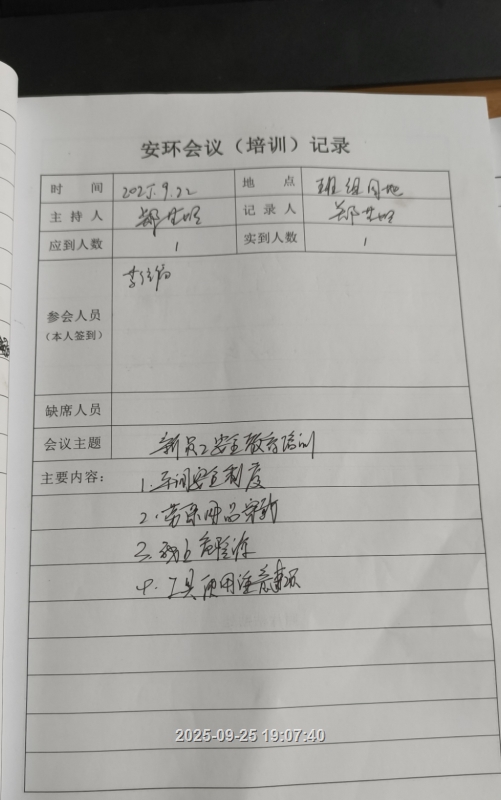 安环会议（培训）记录
时 间 2025.9.22 地 点 班组园地
主 持 人 郑 记 录 人 郑
应到人数 1 实到人数 1
参会人员 李
（本人签到）
缺席人员
会议主题 新员工安全教育培训
主要内容： 1.车间安全制度
2.劳保用品穿戴
3.
4.工具使用注意事项
2025-09-25 19:07:40